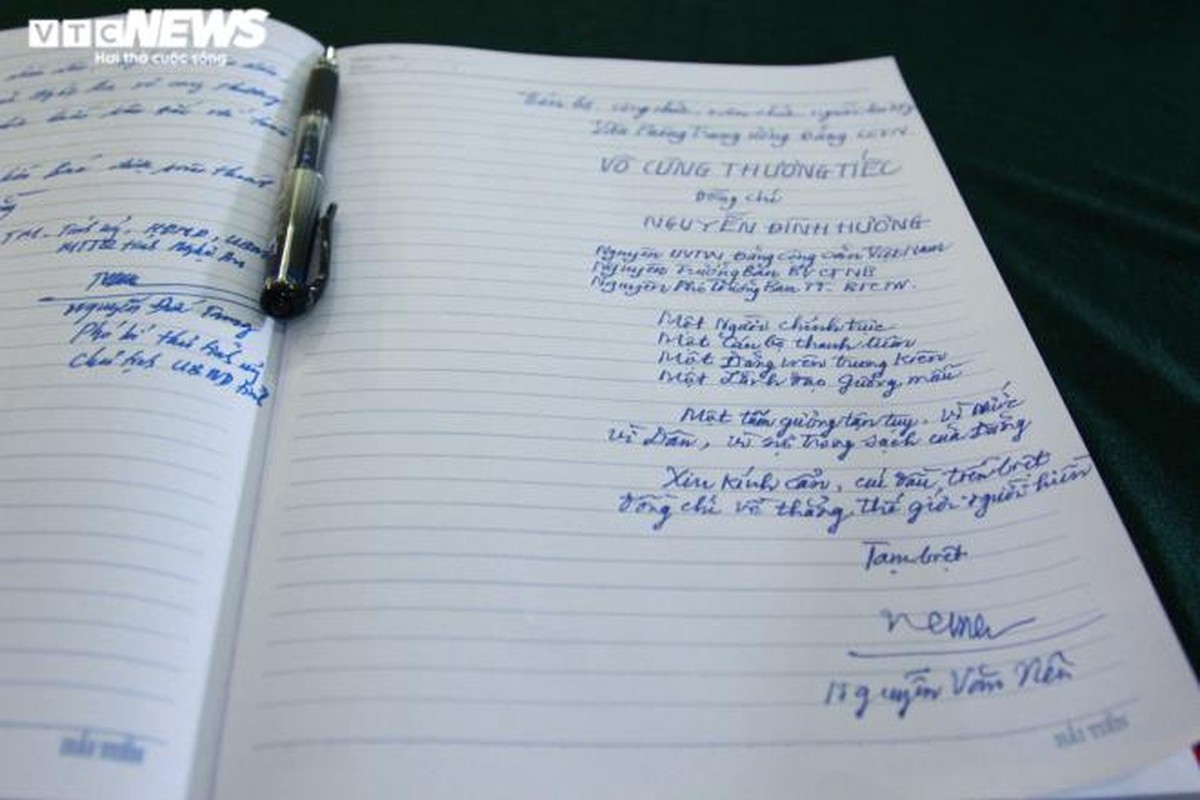 VTC NEWS
Hơi thở cuộc sống
thương
TM. Tỉnh uỷ, HĐND, UBND
MTTQ tỉnh Nghệ An
Nguyễn Đức Trung
Phó bí thư tỉnh uỷ
Chủ tịch UBND tỉnh
HẢI TIẾN
công chức, viên chức, người
Văn phòng Trung ương Đảng CSVN.
VÔ CÙNG THƯƠNG TIẾC
Đồng chí
NGUYỄN ĐÌNH HƯƠNG
Nguyên UVTW Đảng Cộng sản Việt Nam
Nguyên Trưởng Ban BVCTNB
Nguyên Phó Trưởng Ban TT. BTCTW.
Một Người chính trực
Một Cán bộ thanh liêm
Một Đảng viên trung kiên
Một Lãnh đạo gương mẫu
Một tấm gương tận tụy, vì nước
vì Dân, vì sự trong sạch của Đảng
Xin kính cẩn, cúi đầu, tiễn biệt
đồng chí về thẳng thế giới người hiền
Tạm biệt
Nguyễn Văn Nên
HẢI TIẾN